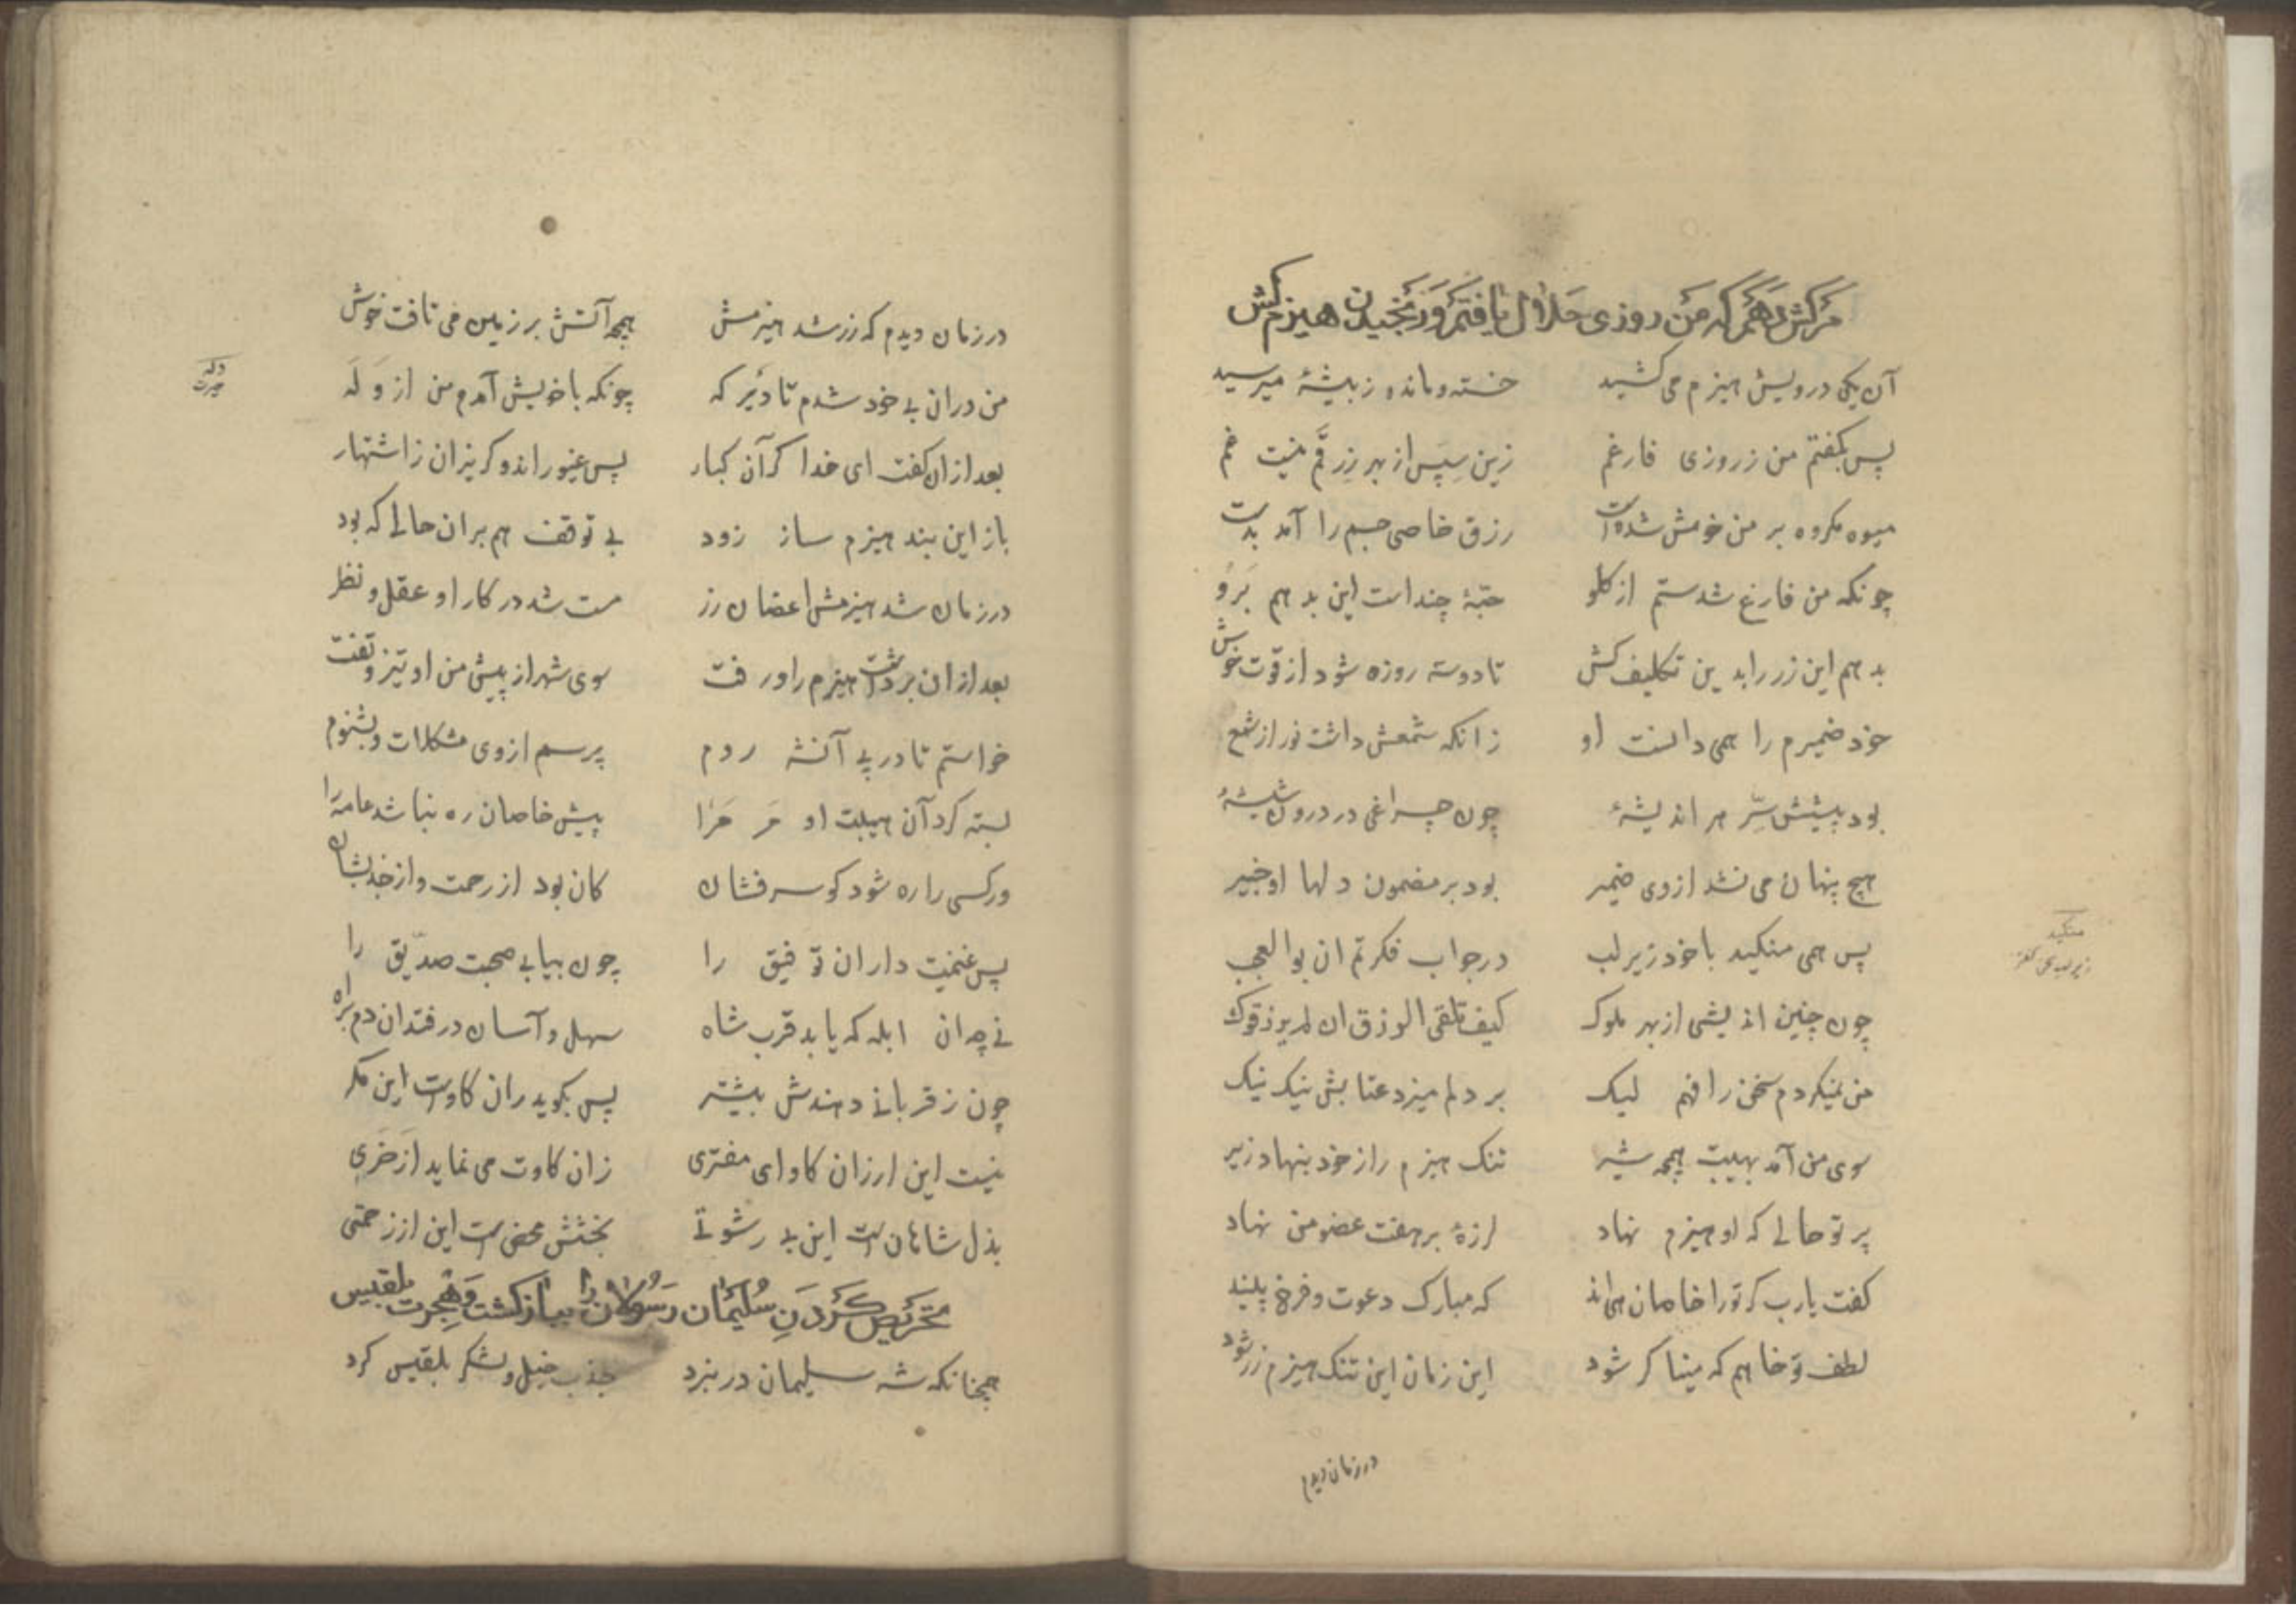 مر کش دهم که من روزی حلال یافتم و رنجیدن هیزم کش
آن یکی درویش هیزم می کشید خسته و مانده ز بیشهٔ میرسید
پس بکفتم من ز روزی فارغم زین سپس از بهر رزقم نیست غم
میوه مکروه بر من خوش شدست رزق خاصی جسم را آمد بدست
چونکه من فارغ شدستم از کلو حبّهٔ چندست این بدهم بَرو
بدهم این زر را بدین تکلیف کش تا دوسته روزه شود از قوّت خوش
خود ضمیرم را همی دانست او زانکه شمعش داشت نور از شمع
بود پیشش سِّر هر اندیشهٔ چون چراغی در درون شیشهٔ
هیچ پنهان می نشد از وی ضمیر بود بر مضمون دلها او خبیر
پس همی منکید با خود زیر لب در جواب فکرتم ان بوالعجب
چون چنین اندیشی از بهر ملوک کیف تلقی الرزق ان لم یرزقوک
من نمیکردم سخن را فهم لیک بر دلم میزد عتابش نیک نیک
سوی من آمد بهیبت همچو شیر تنک هیزم را ز خود بنهاد زیر
پرتو حالی که او هیزم نهاد لرزهٔ بر هفت عضو من نهاد
کفت یارب کر تو را خاصان هی اند که مبارک دعوت و فرخ پیند
لطف تو خاهم که میناکر شود این زمان این تنک هیزم زر شود
در زمان دیدم
منکید
زیر لب
در زمان دیدم که زر شد هیزمش همچو آتش بر زمین می تافت خوش
من دران بی خود شدم تا دیر که چونکه با خویش آمدم من از وَلَه
بعد ازان کفت ای خدا کر آن کبار بس غیوراند و کریزان ز اشتهار
باز این بند هیزم ساز زود بی توقف هم بران حالی که بود
در زمان شد هیزمش اغصان رز مست شد در کار او عقل و نظر
بعد ازان برداشت هیزم را و رفت سوی شهر از پیش من او تیز و تفت
خواستم تا در پی آنشه روم پرسم از وی مشکلات و بشنوم
بسته کرد آن هیبت او مر مرا پیش خاصان ره نباشد عامه را
ور کسی را ره شود کو سر فشان کان بود از رحمت و از جذبشان
پس غنیمت دار ان توفیق را چون بیابی صحبت صدّیق را
نی چو ان ابله که یابد قرب شاه سهل و آسان در فتد ان دم براه
چون ز قربانی دهندش بیشتر پس بکوید ران کاوست این مکر
نیست این از ران کاو ای مفتری ران کاوت می نماید از خری
بذل شاهانست این بی رشوتی بخشش محضست این از رحمتی
تحریض کردن سلیمان رسولان را بباز کشت و هجرت بلقیس
همچنانکه شه سلیمان در نبرد جذب خیل و لشکر بلقیس کرد
وله
حیرت